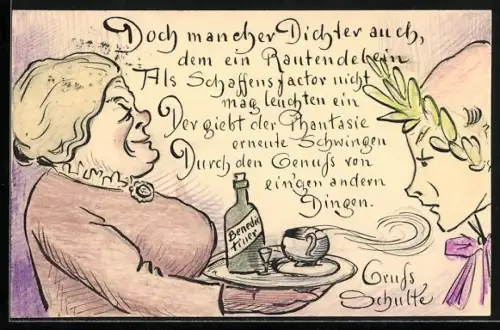 Doch mancher Dichter auch,
dem ein Rautendelein
Als Schaffensfactor nicht
mag leuchten ein
Der giebt der Phantasie
erneute Schwingen
Durch den Genuſs von
ein'gen andern
Dingen.
Benedic
tiner
Gruſs
Schulte